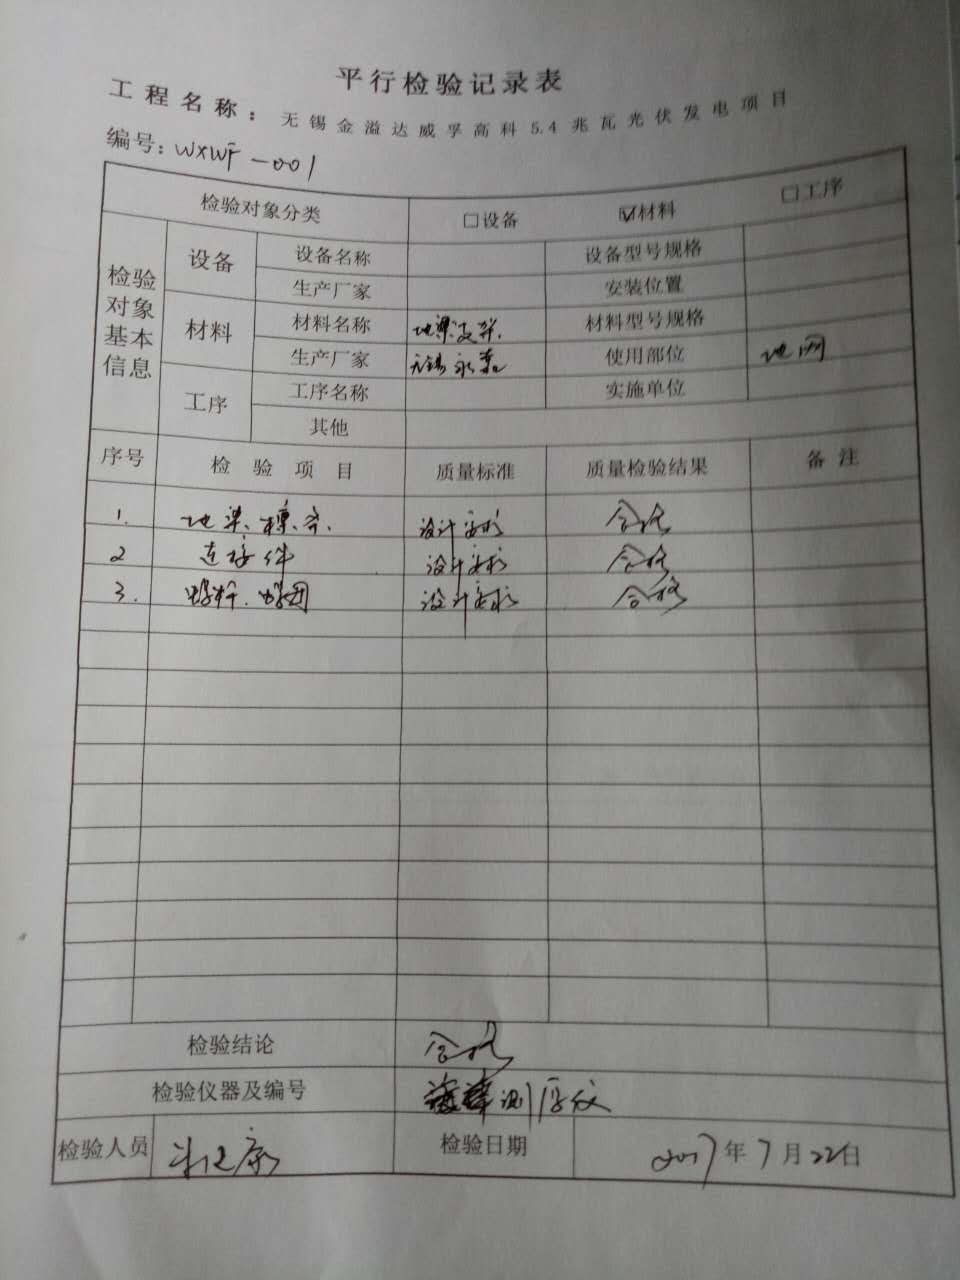 平行检验记录表
工程名称：无锡金溢达威孚高科5.4兆瓦光伏发电项目
编号：WXWF-001
检验对象分类 □设备 ☑材料 □工序
检验对象基本信息
设备 设备名称 设备型号规格
生产厂家 安装位置
材料 材料名称 地梁支架. 材料型号规格
生产厂家 无锡永嘉 使用部位 地网
工序 工序名称 实施单位
其他
序号 检验项目 质量标准 质量检验结果 备注
1. 地梁、檩条. 设计要求 合格
2 连接件 设计要求 合格
3. 设计要求 合格
检验结论 合格
检验仪器及编号 测厚仪
检验人员 检验日期 2017年7月22日